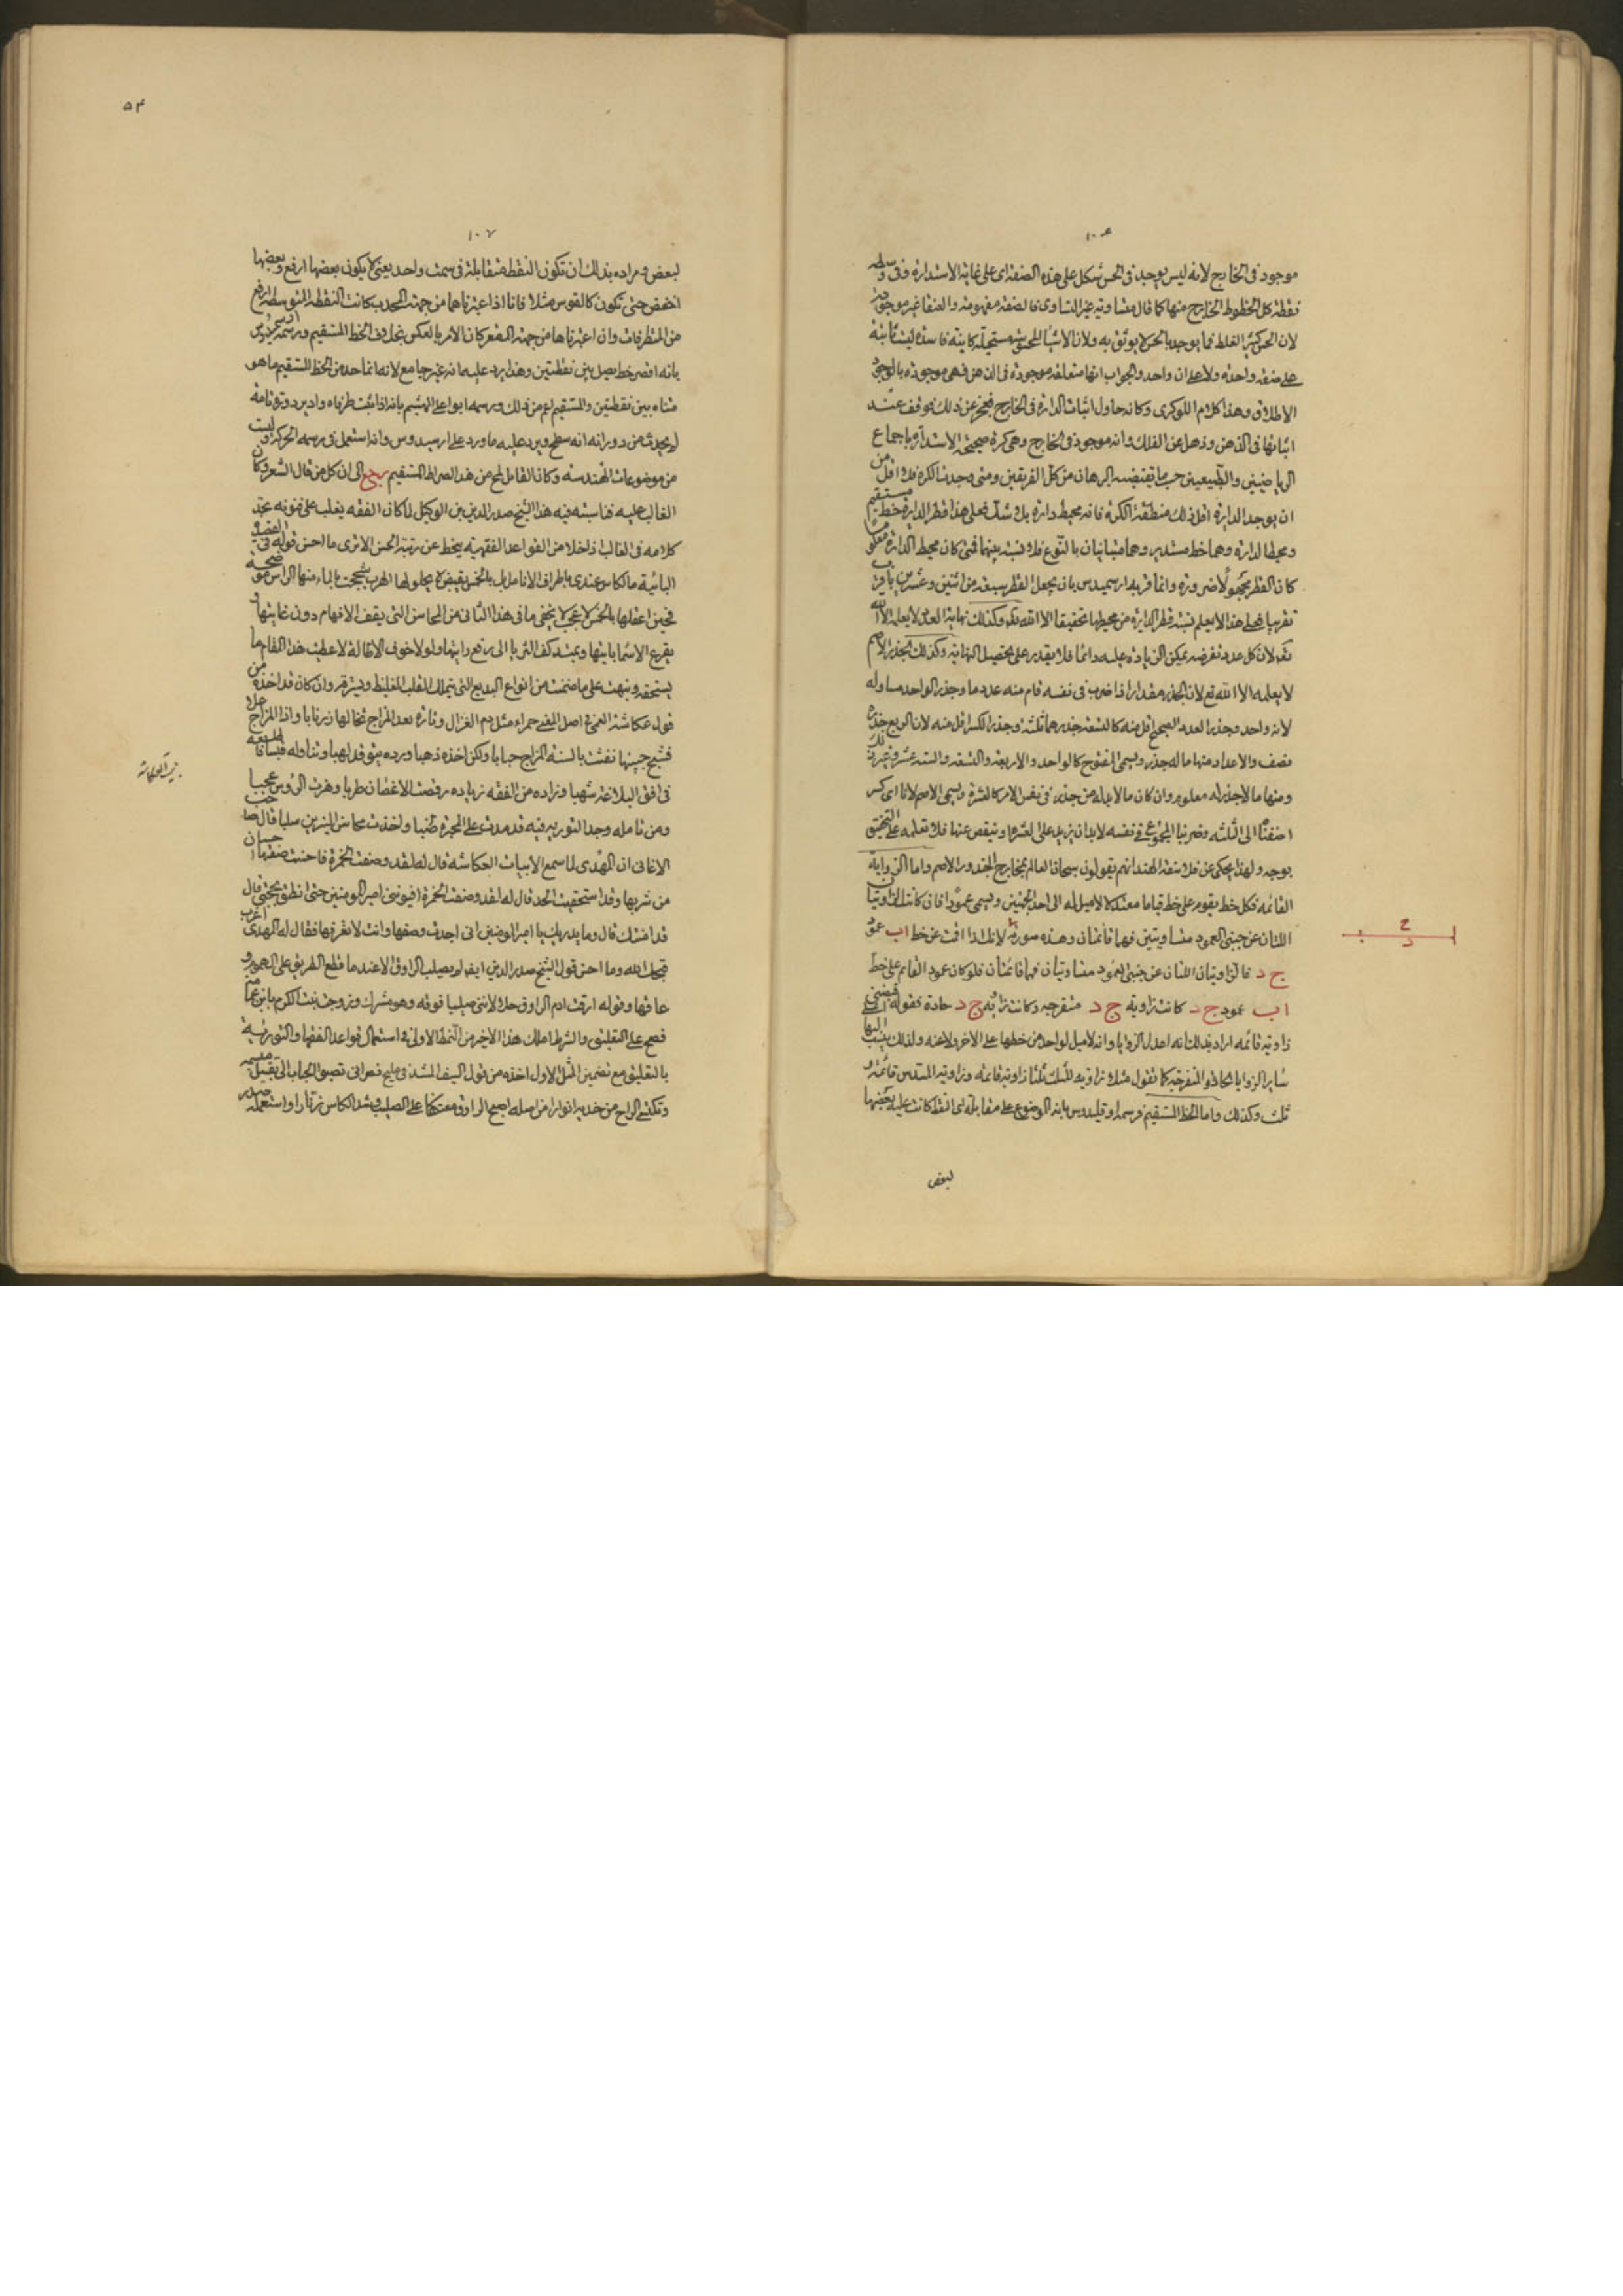 ١٠٦
موجود فى الخارج لانه ليس يوجد فى الحس شكل على هذه الصفة اى على غاية الاستدارة وفى وسطه
نقطة كل الخطوط الخارج منها كما قال متساوية غير التساوى فالصفة مفهومة والعنقا غير موجودة
لان الحس كثير الغلط فما يوجد بالحس لا يوثق به ولان الاشيا المحسوسة مستحيلة كاينة فاسدة ليست ثابتة
على صفة واحدة ولا على ان واحد والجواب انها متعلقة موجودة فى الذهن فهى موجودة بالوجود
الاطلاق وهذا كلام اللوكرى وكانه حاول اثبات الدائرة فى الخارج فعجز عن ذلك فوقف عند
اثباتها فى الذهن وذهل عن الفلك وانه موجود فى الخارج وهى كرة صحيحة الاستدارة باجماع
الرياضيين والطبيعيين حسب ما يقتضيه البرهان من كل الفريقين ومتى وجدت الكرة فلا اقل من
ان يوجد الدايرة اقل ذلك منطقة الكرة فانه محيط دائرة بلا شك فعلى هذا قطر الدايرة خط مستقيم
ومحيط الدايرة وهما خط مستدير وهما متباينان بالنوع فلا نسبة بينهما فمتى كان محيط الدائرة معلوما
كان القطر مجهولا ضرورة وانما قربه ارسميدس بان يجعل القطر سبعة من اثنين وعشرين بامر
تقريبا فعلى هذا لا يعلم نسبة قطر الدايرة من محيطها تحقيقا الا الله تع وكذلك نهاية العدد لا يعلمه الا الله
تع لان كل عدد نفرضه يمكن الزيادة عليه دائما فلا يقدر على تحصيل النهاية وكذلك الجذر الاصم
لا يعلمه الا الله تع لان الجذر مقدار اذا ضرب فى نفسه قام منه عدد ما وجذر الواحد مساو له
لانه واحد وجذر العدد الصحيح اقل منه كالتسعة جذرهما ثلثة وجذر الكسر اقل منه لان الربع جذره
نصف والاعداد منها ما له جذر ويسمى المفتوح كالواحد والاربعة والتسعة والستة عشر وغير ذلك
ومنها ما لا جذر له معلوم وان كان ما لا بد له من جذر فى نفس الامر كالعشرة ويسمى الاصم لانا اى كسر
اضفناه الى الثلثة وضربنا المجموع فى نفسه لا بد ان يزيد على العشرة او ينقص عنها فلا تعلمه على التحقيق
بوجه ولهذا يحكى عن فلاسفة الهند انهم يقولون سبحان العالم بمخارج الجذور الاصم واما الزواية
القائمة فكل خط يقوم على خط قياما معتدلا لا ميل له الى احد الجهتين ويسمى عمودا فان كانت الزاويتان
اللتان عن جنبى العمود متساويتين فهما قائمتان وهذه صورته لانك اذا اقمت عن خط اب عمود
ج د فالزاويتان اللتان عن جنبى العمود متساويتان فهما قائمتان فلو كان عمود القايم على خط
اب عمود ج د كانت زاوية ج د منفرجه وكانت زاوية ج د حادة فقوله قضى
زاوية قائمه اراد بذلك انه اعدل الزوايا وانه لا ميل لواحد من خطها على الاخر ولا عنه ولذلك ينسب اليها
ساير الزوايا الحاد والمنفرجه كما نقول مثلا زاوية المثلث ثلثا زاوية قائمه وزاوية المسدس قائمة و
ثلث وكذلك واما الخط المستقيم فرسمه اوقليدس بانه الموضوع على مقابلة اى النقط كانت عليه بعضها
لبعض
ج
ا
ب
د
٥٣
١٠٧
لبعض ومراده بذلك ان تكون النقط متقابلة فى سمت واحد يعنى لا يكون بعضها ارفع وبعضها
اخفض حتى تكون كالقوس مثلا فانا اذا اعتبرناها من جهة المحدب كانت النقطه المتوسطه ارفع
من المتطرفات وان اعتبرناها من جهة المقعر كان الامر بالعكس بخلاف الخط المستقيم ورسمه ارسميدس
بانه اقصر خط يصل بين نقطتين وهذا يرد عليه بانه غير جامع لانه انما حد من الخط المستقيم ما هو
متناه بين نقطتين والمستقيم اعم من ذلك ورسمه ابو على الهيثم بانه اذا ثبت طرفاه وادير دورة تامة
لم يحدث من دورانه انه سطح ويرد عليه ما ورد على ارسميدوس وانه استعمل فى رسمه الحركة وليست
من موضوعات الهندسه وكان القايل لمح من هذا الصراط المستقيم رجع الى ان كل من قال الشعر وكان
الغالب عليه فناسبته فيه هذا الشيخ صدر الدين بن الوكيل لما كان الفقه يغلب على فنونه تجد
كلامه فى الغالب داخلا من القواعد الفقهية ينحط عن رتبة الحسن الا ترى ما احسن قوله فى القصيدة
البائية ما الكاس عندى باطراف الانامل بل بالخمس يقبض لا يحلو لها الهرب شججت بالماء منها الراس موضحة
فحين اعقلها بالخمس لا عجب لا يخفى ما فى هذا الثانى من المحاسن التى يقف الافهام دون غايتها و
يقرع الاسما باينها ويمتد كف الثريا الى رفع رايتها ولولا خوف الاطالة لاعطيت هذا المقام ما
يستحقه ونبهت على ما ضمنته من انواع البديع التى يتملك القلب الغليظ ويسترقه وان كان قد اخذه من
قول عكاشة العمى فى اصل المعنى حمراء مثل دم الغزال وتارة بعد المزاج تخالها زريابا واذا المزاج علا
فشج جبينها نفثت بالسنة المزاج حبابا ولكن اخذه ذهبا ورده يتوقد لهبا وتناوله قبسا فاطلعه
فى افق البلاغة شهبا وزاده من الفقه زيادة رقصت الاغصان طربا وهزت الروس عجبا
ومن تامله وجد التورية فيه قد مدت على المجرة طنبا واخذت محاسن النيرين سلبا قال صاحب
الاغانى ان المهدى لما سمع الابيات العكاشة قال له لقد وصفت الخمرة فاحسنت صفتها احسان
من شربها وقد استحقيت الحد قال له لقد وصفت الخمرة افيؤمنى امير المومنين حتى انطق بحجتى قال
قد امنتك قال وما يدريك يا امير المومنين انى اجدت وصفها وانت لا تعرفها فقال له المهدى اعزب
قبحك الله وما احسن قول الشيخ صدر الدين ايضا لم يصلب الراوق الا عند ما قطع الطريق على الهموم و
عاقها وقوله ارقت ادم الراوق حلا لاننى صليبا فوقه وهو مشرك وزوجت بنت الكرم بابن غمامه
فصح على التعليق والشرط املك هذا الاخير من النمط الاول فى استعمال قواعد الفقها والتورية
بالتعليق مع تضمين المثل الاول اخذه من قول السيف المشد فى مليح نصرانى تصبو الحباب الى تقبيل مبسمه
وتكتسى الراح من خديه انوارا من اجله اصبح الراووق معتكفا على الصليب وشد الكاس زنارا واستعمله صدر